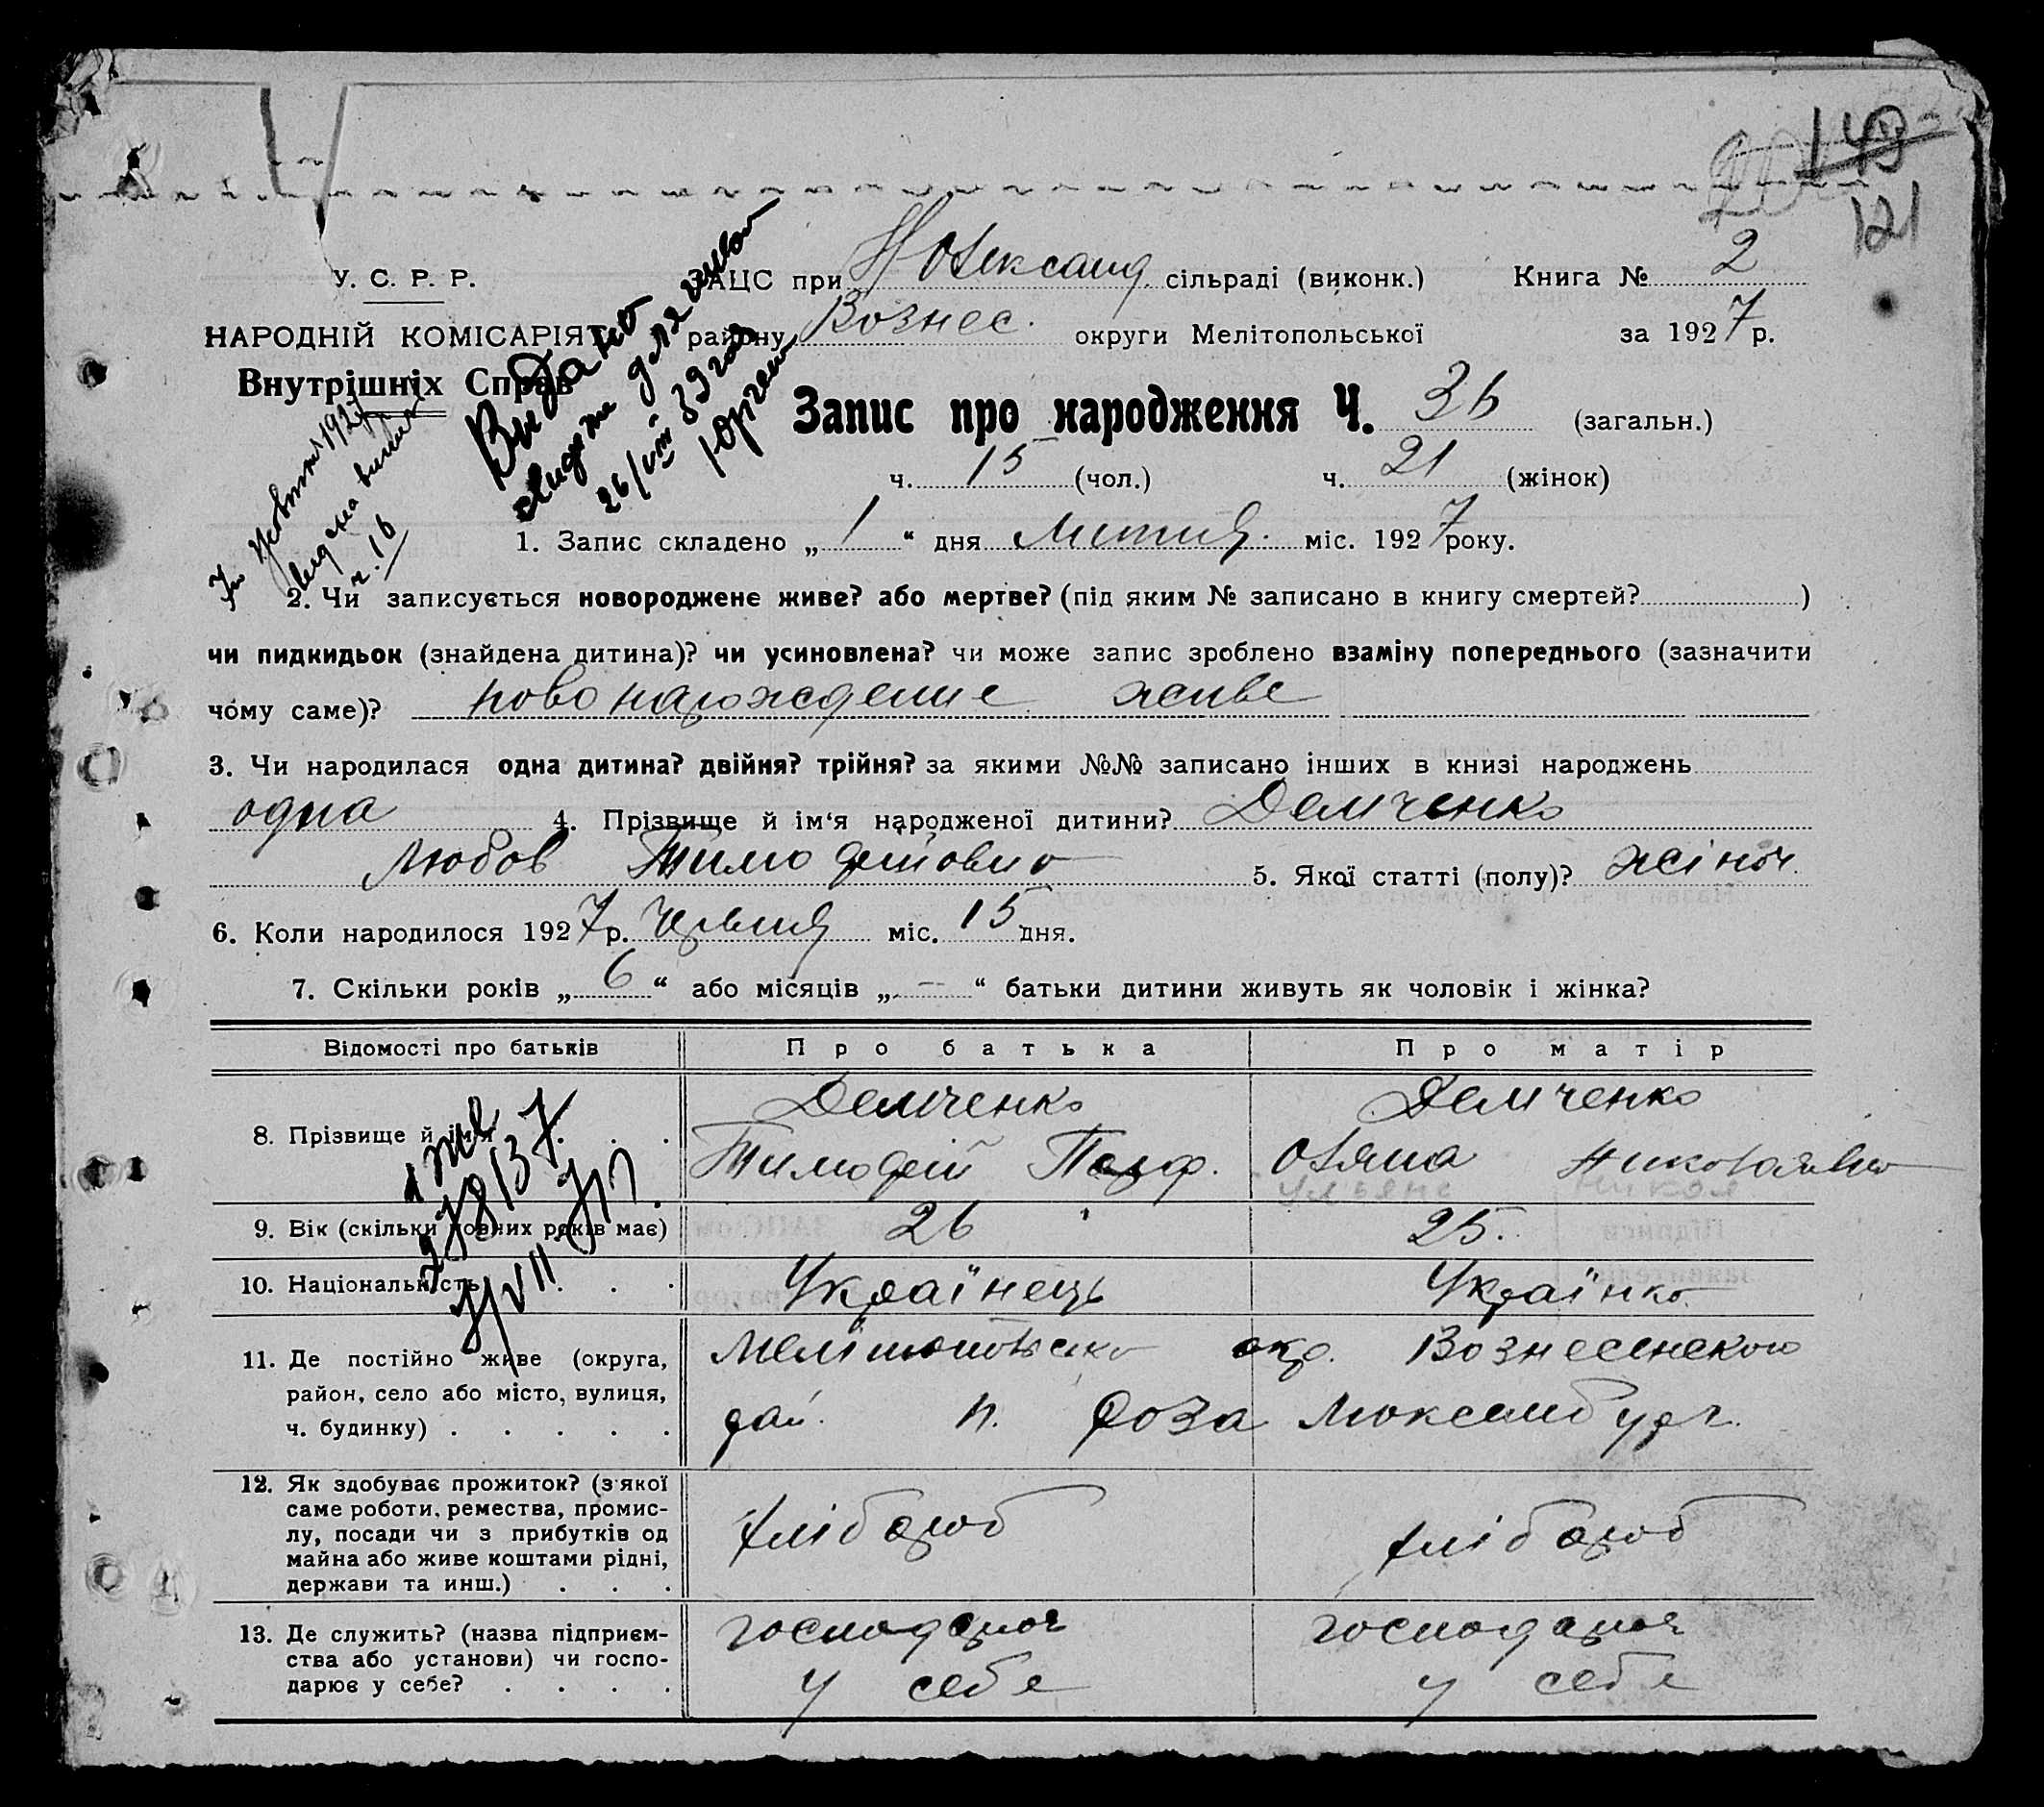 149
121
У. С. Р. Р.
ЗАЦС при сільраді (виконк.) Книга № 2
НАРОДНІЙ КОМІСАРІЯТ району Вознес. округи Мелітопольської за 1927 р.
Внутрішніх Справ
Видано
26/VIII 39 года
ч. 16
Запис про народження Ч. 36 (загальн.)
ч. 15 (чол.) ч. 21 (жінок)
1. Запис складено „ 1 “ дня Липня міс. 1927 року.
2. Чи записується новороджене живе? або мертве? (під яким № записано в книгу смертей? )
чи пидкидьок (знайдена дитина)? чи усиновлена? чи може запис зроблено взаміну попереднього (зазначити
чому саме)? новонарождение живе
3. Чи народилася одна дитина? двійня? трійня? за якими №№ записано інших в книзі народжень
одна 4. Прізвище й ім‘я народженої дитини? Демченко
Любов Тимофійовна 5. Якої статті (полу)? жіноч.
6. Коли народилося 1927 р. Червня міс. 15 дня.
7. Скільки років „ 6 “ або місяців „ — “ батьки дитини живуть як чоловік і жінка?
Відомості про батьків Про батька Про матір
8. Прізвище й ім‘я . . . Демченко Демченко
Тимофій Парф. Уляна Николаевна
Ульяна Никол
9. Вік (скільки повних років має) 26 25.
10. Національність . . . Українець Українка
11. Де постійно живе (округа, Мелітопольско окр. Вознесенского
район, село або місто, вулиця,
ч. будинку) . . . . . рай. п. Роза Люксембург.
12. Як здобуває прожиток? (з якої
саме роботи, ремества, промис-
лу, посади чи з прибутків од
майна або живе коштами рідні,
держави та инш.) . . . хлібороб хлібороб
13. Де служить? (назва підприєм-
ства або установи) чи госпо-
дарює у себе? . . . . господарює господарює
у себе у себе